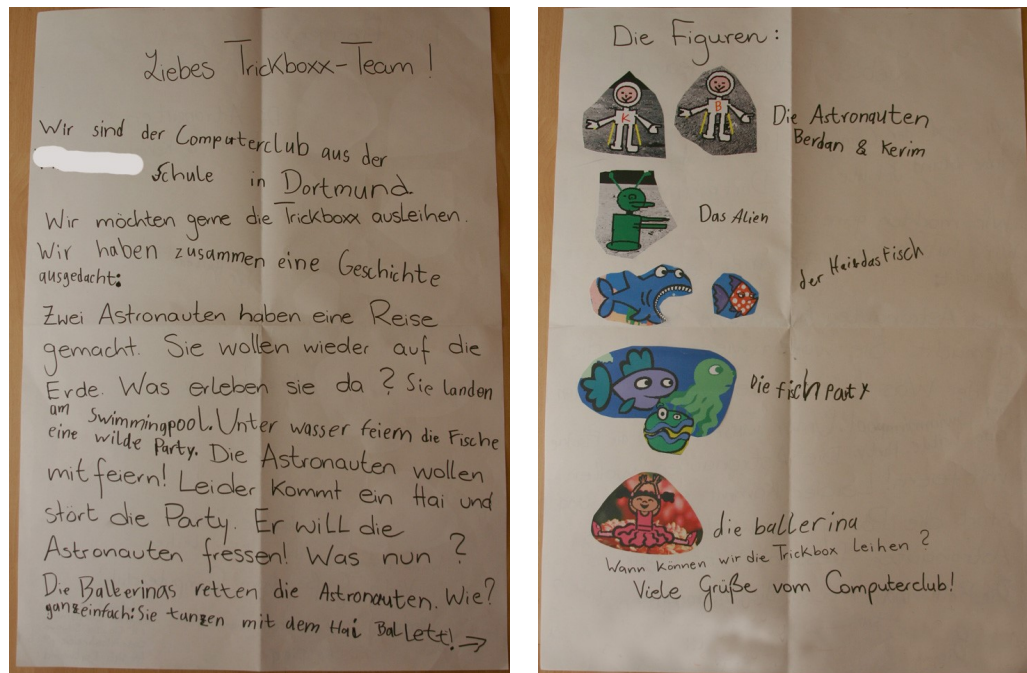 Liebes Trickboxx-Team!
Wir sind der Computerclub aus der
Schule in Dortmund
Wir möchten gerne die Trickboxx ausleihen.
Wir haben zusammen eine Geschichte
ausgedacht:
Zwei Astronauten haben eine Reise
gemacht. Sie wollen wieder auf die
Erde. Was erleben sie da? Sie landen
am Swimmingpool. Unter wasser feiern die Fische
eine wilde Party. Die Astronauten wollen
mit feiern! Leider kommt ein Hai und
stört die Party. Er will die
Astronauten fressen! Was nun?
Die Ballerinas retten die Astronauten. Wie?
ganz einfach: Sie tanzen mit dem Hai Ballett! →
Die Figuren:
K
B
Die Astronauten
Berdan & Kerim
Das Alien
der Hai + das Fisch
Die fisch Party
die ballerina
Wann können wir die Trickbox leihen?
Viele Grüße vom Computerclub!